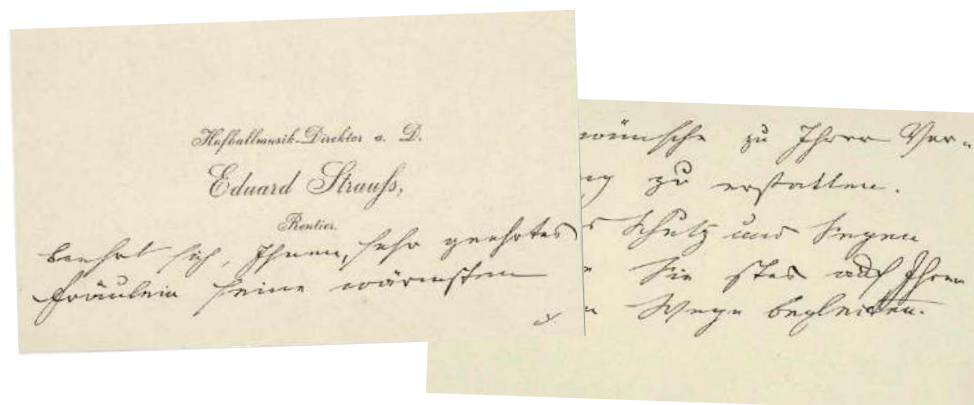 Hofballmusik-Direktor a. D.
Eduard Strauſs,
Rentier.
beehrt sich, Ihnen, sehr geehrtes
Fräulein seine wärmsten
wünsche zu Ihrer Ver-
zu erstatten.
Schutz und Segen
Sie stets auf Ihren
Wege begleiten.